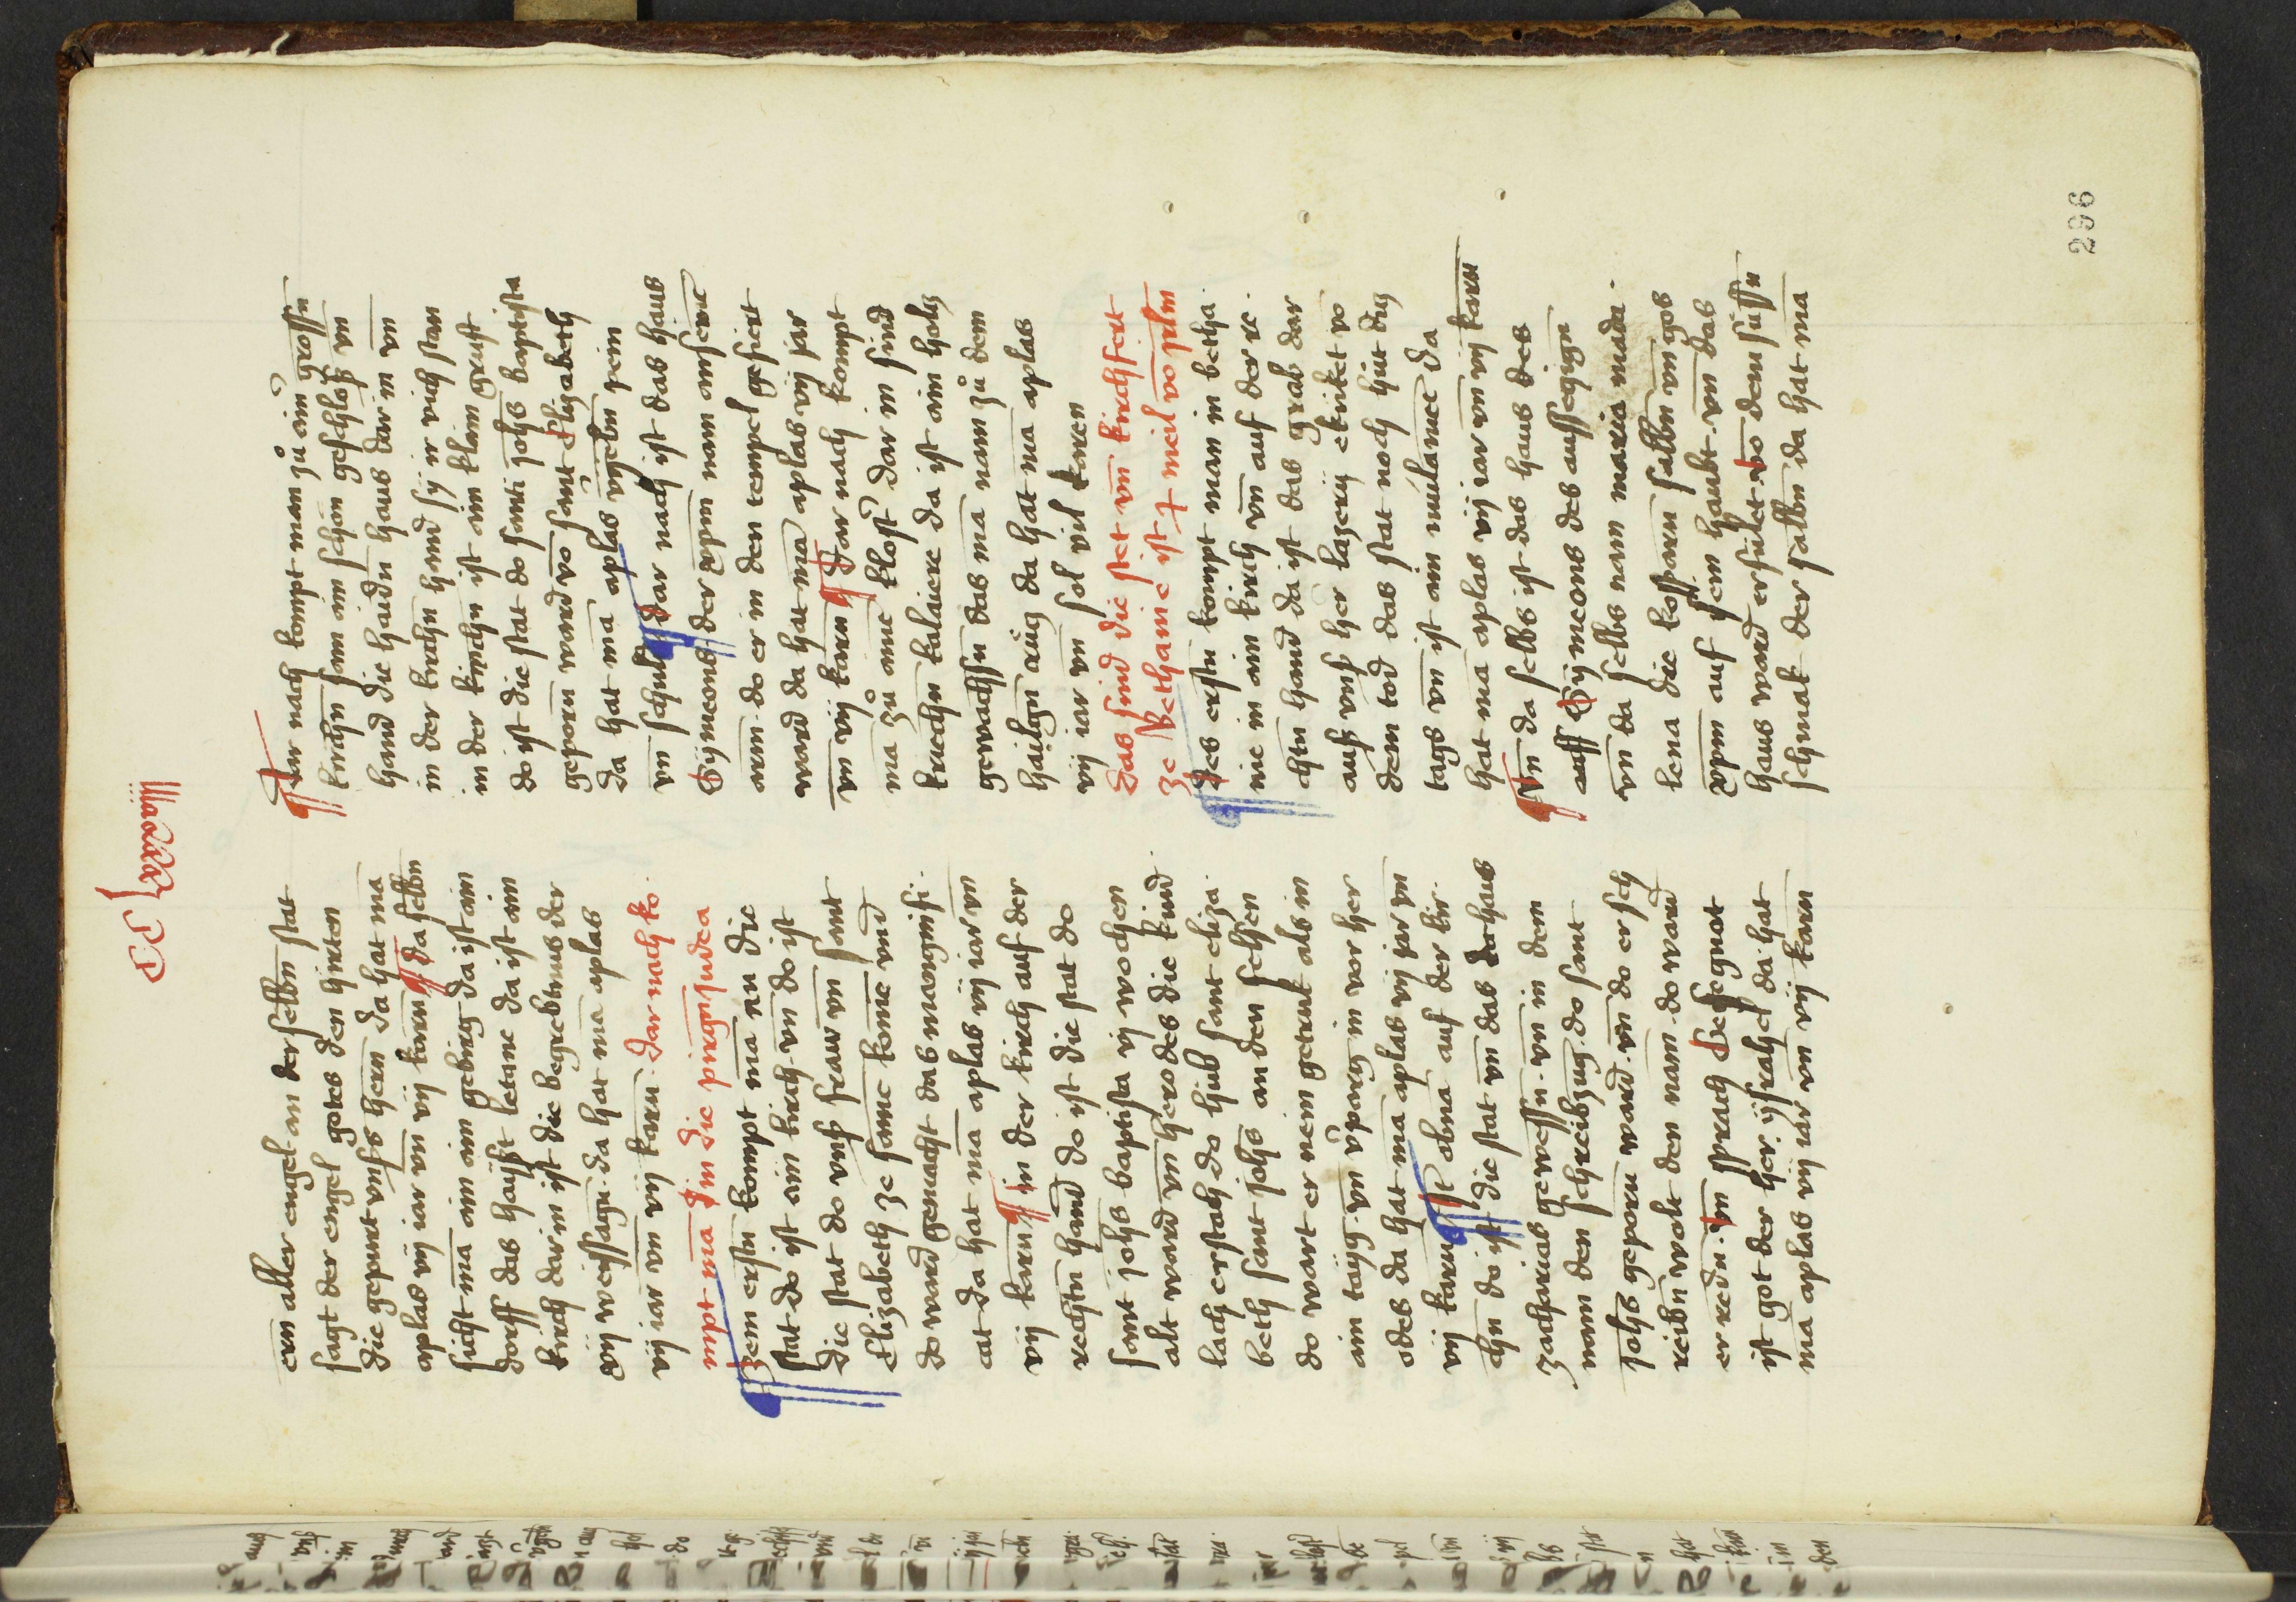 CC lxxxxiiij
ern aller engel an der selbn stat
sagt der engel gotes den hirten
die gepurt vnsʒ hern da hat ma
aplas vij iar vn̄ vij karn ¶ da selbn
sicht ma ain ain gebirg da ist ain
dorff das haÿsst letane da ist ain
kirch dar in ist die begrebtnus der
xij weissagn da hat ma aplas
vij iar vn̄ vij karn. dar nach ko
mpt ma in die pirgn judea
¶ Zem erstn kompt ma an die
stat do ist ain kirch vn̄ do ist
die stat do vnß fraw vn̄ sant
Elizabeth ze same kome vnd
do ward gemacht das mangnifi
cat da hat ma aplas vij iar vn̄
vij karn ¶ in der kirch auf der
rechtn hand do ist die stat do
sant johs baptista vj wochen
alt ward vn̄ herodes die kind
lach erstach do hub sant eliza
beth sant johs an den felsen
do wart er nem getrut als in
ain taÿg vn̄ vparg in vor her
odes da hat ma aplas vij jar vn̄
vij karn ¶ It obna auf der kir
chn do ist die stat vn̄ das da haus
zacharias gewessn. vn̄ in dem
nam den schreibzug. do sant
Johs geporn ward. vn̄ do er sch
reibn wolt den nam. do ward
er redn. vn̄ sprach Gesegnot
ist got der her ÿsrahel da hat
ma aplas vij iar vn̄ vij karn
¶ Dar nach kompt man zů aim grossn
kirchn som ain schön geschloß vn̄
hand die haidn haus dar in vn̄
in der krchn hend sÿ ir vich stan
in der kirchn ist ain klain gruft
do ist die stat do santi johs baptista
geporn ward vo sant Elizabeth
da hat ma aplas vÿeln pein
vn̄ schuld ¶ dar nach ist das haus
Sÿmeons der xpm nam an seine
arm. do er in den tempel gefiert
ward da hat ma aplas vij jar
vn̄ vij karn ¶ Dar nach kompt
ma zů aine klost dar in sind
kriechn kalaiere da ist ain holtz
gewachssn das ma nam zů dem
hailgn aug da hat ma aplas
vij iar vn̄ sol vil karen
Das sind die stet vn̄ kirchfert
ze Bethanie ist j meil vo jrlm
¶ Des erstn kompt man in betha
nie in ain kirch vn̄ auf der re
chtn hand da ist das grab dar
auß vnß her lazerij ekiket vo
dem tod das stat noch hüt diz
tags vn̄ ist ain mulamee da
hat ma aplas vij iar vn̄ vij karn
¶ Vn̄ da selbs ist das haus des
auff Sÿmeons des aussecign
vn̄ da selbs nam maria mada
lena die kosparn salbn vn̄ gos
xpm auf sein haubt. vn̄ das
haus ward erfulet vo dem sussn
schmak der salbn da hat ma
296